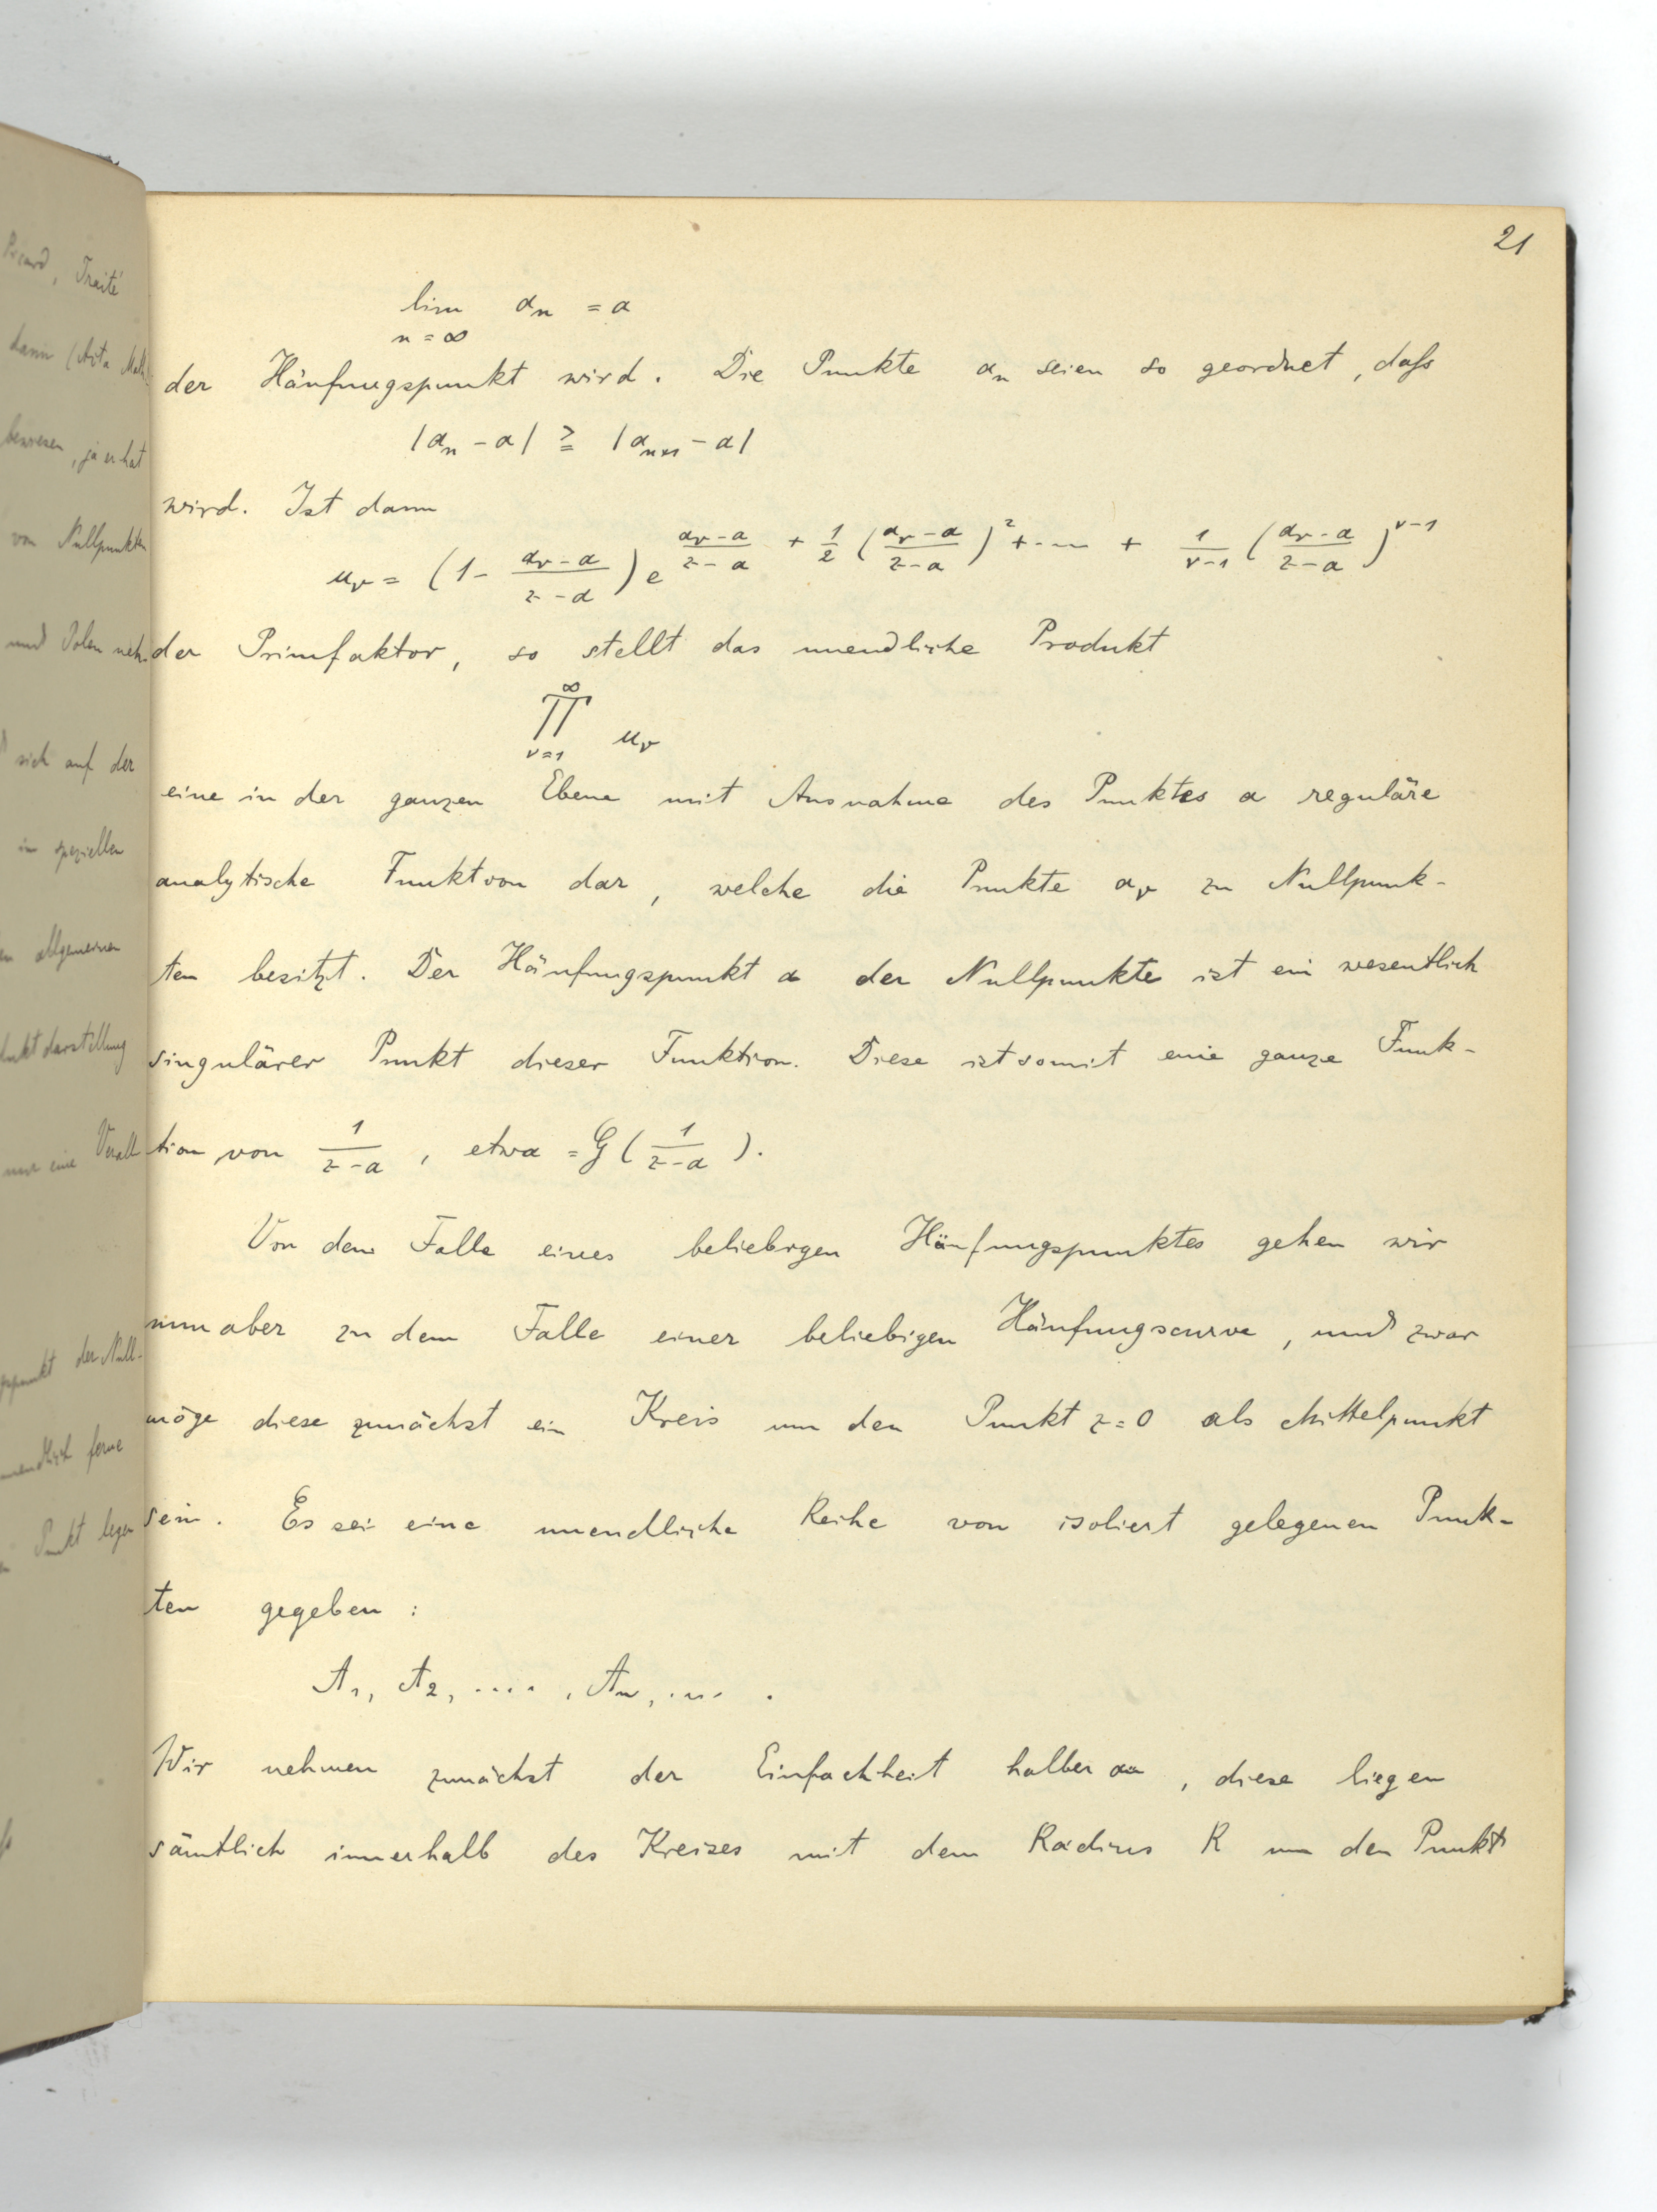 Picard, Traité
dann (Acta Math.
bewiesen, ja er hat
von Nullpunkten
und Polen neh-
sich auf der
im speziellen
allgemeinen
duktdarstellung
nur eine Verall
der Null-
unendlich ferne
Punkt legen
21
lim a_n = a
n = ∞
der Häufungspunkt wird. Die Punkte a_n seien so geordnet, daß
|a_n - a| ≧ |a_{n+1} - a|
wird. Ist dann
u_ν = (1 - \frac{a_ν - a}{z - a}) e^{\frac{a_ν - a}{z - a} + \frac{1}{2} (\frac{a_ν - a}{z - a})^2 + ··· + \frac{1}{ν-1} (\frac{a_ν - a}{z - a})^{ν-1}}
der Primfaktor, so stellt das unendliche Produkt
∏_{ν=1}^{∞} u_ν
eine in der ganzen Ebene mit Ausnahme des Punktes a reguläre
analytische Funktion dar, welche die Punkte a_ν zu Nullpunk-
ten besitzt. Der Häufungspunkt a der Nullpunkte ist ein wesentlich
singulärer Punkt dieser Funktion. Diese ist somit eine ganze Funk-
tion von \frac{1}{z-a}, etwa = G(\frac{1}{z-a}).
Von dem Falle eines beliebigen Häufungspunktes gehen wir
nun aber zu dem Falle einer beliebigen Häufungscurve, und zwar
möge diese zunächst ein Kreis um den Punkt z=0 als Mittelpunkt
sein. Es sei eine unendliche Reihe von isoliert gelegenen Punk-
ten gegeben:
A_1, A_2, ····, A_n, ···· .
Wir nehmen zunächst der Einfachheit halber an, diese liegen
sämtlich innerhalb des Kreises mit dem Radius R um den Punkt